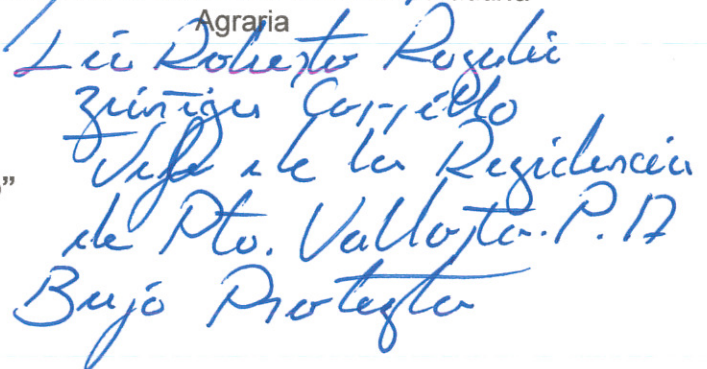 Agraria
Lic Roberto Rogelio
Zuñiga Carrillo
Jefe de la Residencia
”
de Pto. Vallarta. P. A
Bajo Protesta